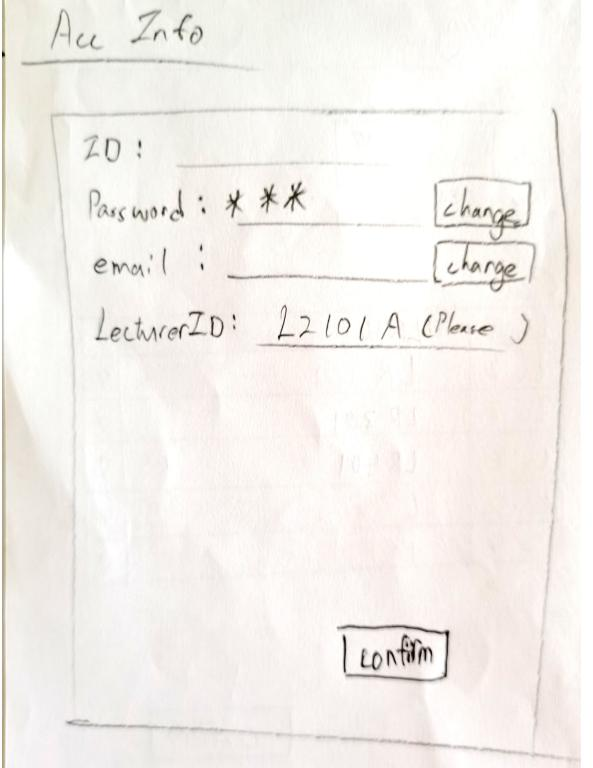 Acc Info
ID :
Password : * * * change
email : change
LecturerID: L2101A (Please )
confirm